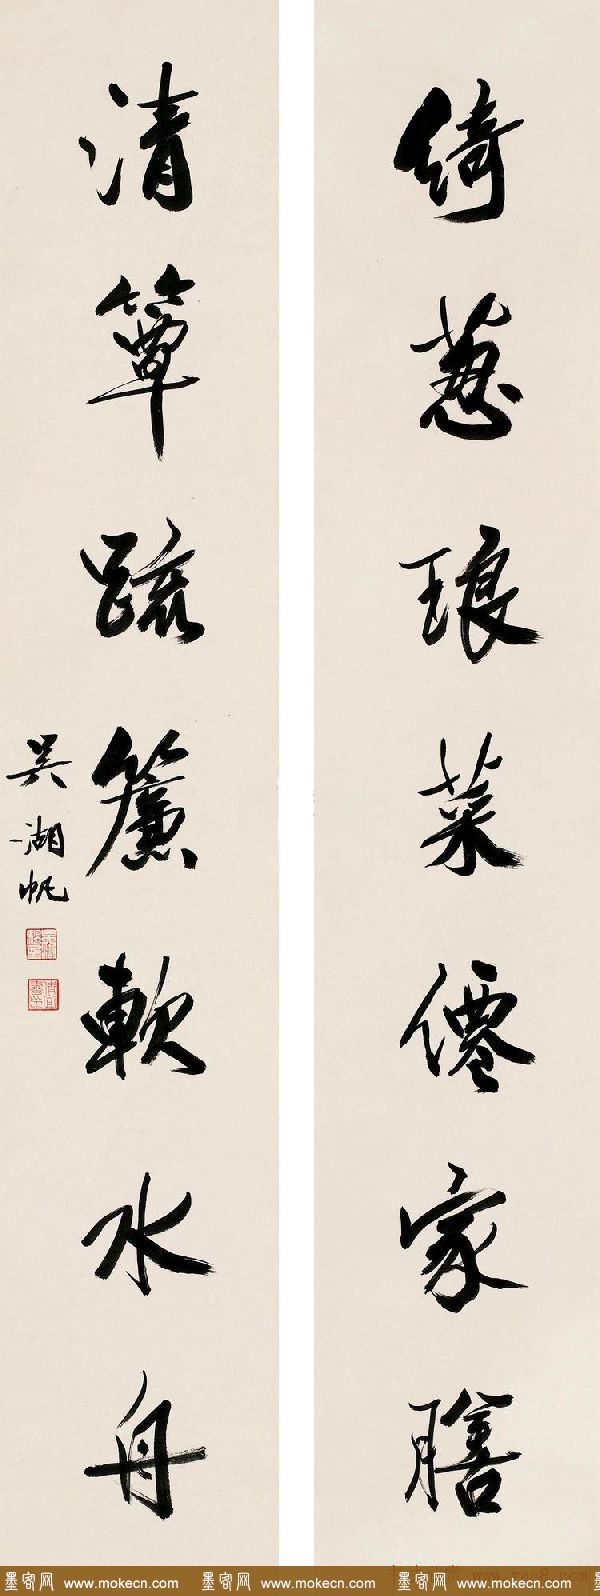 绮葱琅菜僊家膳
清簟疏簾軟水舟
吴湖帆
墨客网 www.mokecn.com 墨客网 www.mokecn.com 墨客网 www.mokecn.com